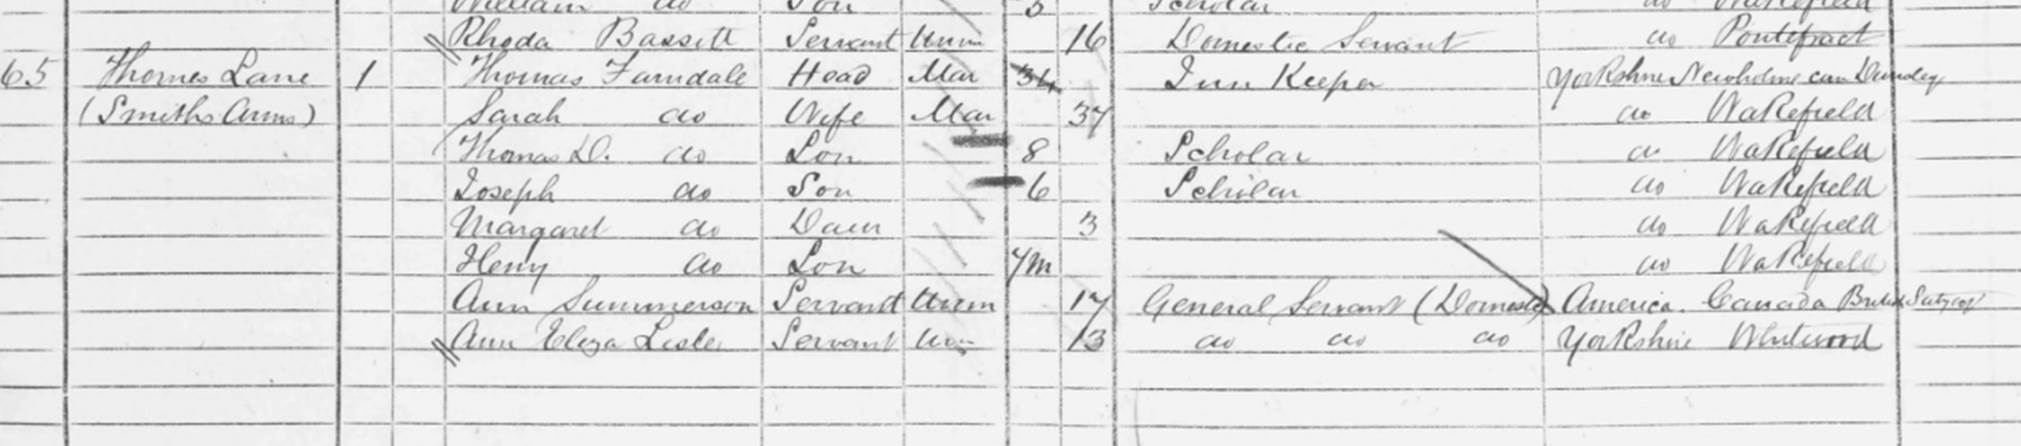 William do Son 5 Scholar do Wakefield
Rhoda Bassett Servant Unm 16 Domestic Servant do Pontefract
65 Thornes Lane 1 Thomas Farndale Head Mar 34 Inn Keeper Yorkshire Newholme cum Dunsley
(Smiths Arms) Sarah do Wife Mar 37 do Wakefield
Thomas D. do Son 8 Scholar do Wakefield
Joseph do Son 6 Scholar do Wakefield
Margaret do Daur 3 do Wakefield
Henry do Son 7m do Wakefield
Ann Summerson Servant Unm 17 General Servant (Domestic) America. Canada British Subject
Ann Eliza Lister Servant Un 13 do do do Yorkshire Whitwood